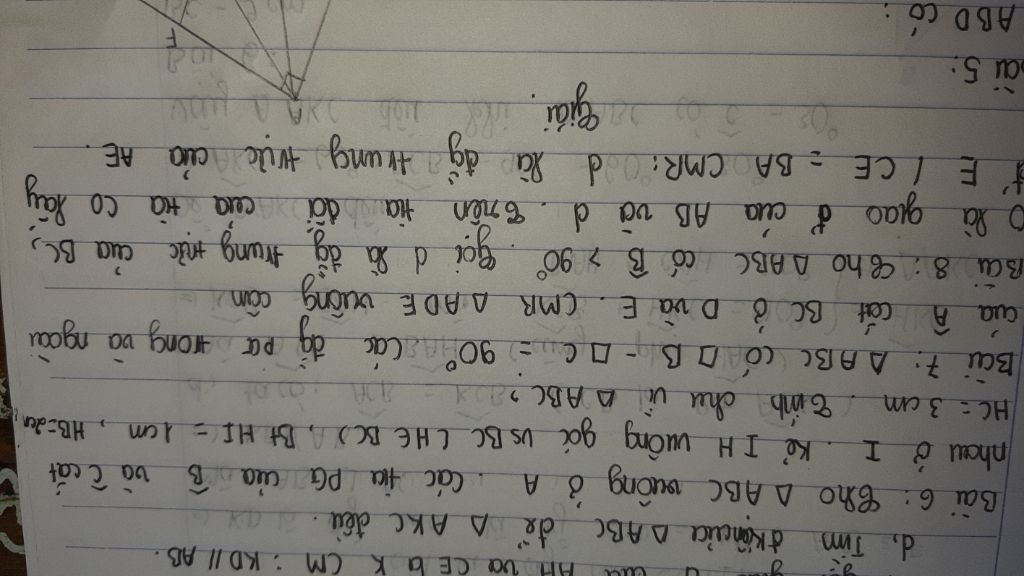 giao đ của AH và CE là K CM : KD // AB.
d, Tìm đkiện của Δ ABC để Δ AKC đều.
Bài 6 : Cho Δ ABC vuông ở A . Các tia pg của B̂ và Ĉ cắt
nhau ở I . Kẻ IH vuông góc vs BC ( H ∈ BC ) , Bt HI = 1cm , HB=2cm
HC = 3 cm . Tính chu vi Δ ABC ,
Bài 7 : Δ ABC có □ B - □ C = 90° các đg pg trong và ngoài
của Â cắt BC ở D và E . CMR Δ ADE vuông cân
Bài 8 : Cho Δ ABC có B̂ > 90° gọi d là đg trung trực của BC ,
O là giao đ của AB và d . Trên tia đối của tia CO lấy
E / CE = BA CMR : d là đg trung trực của AE .
Giải .
Bài 5 :
ABD có :
A
F